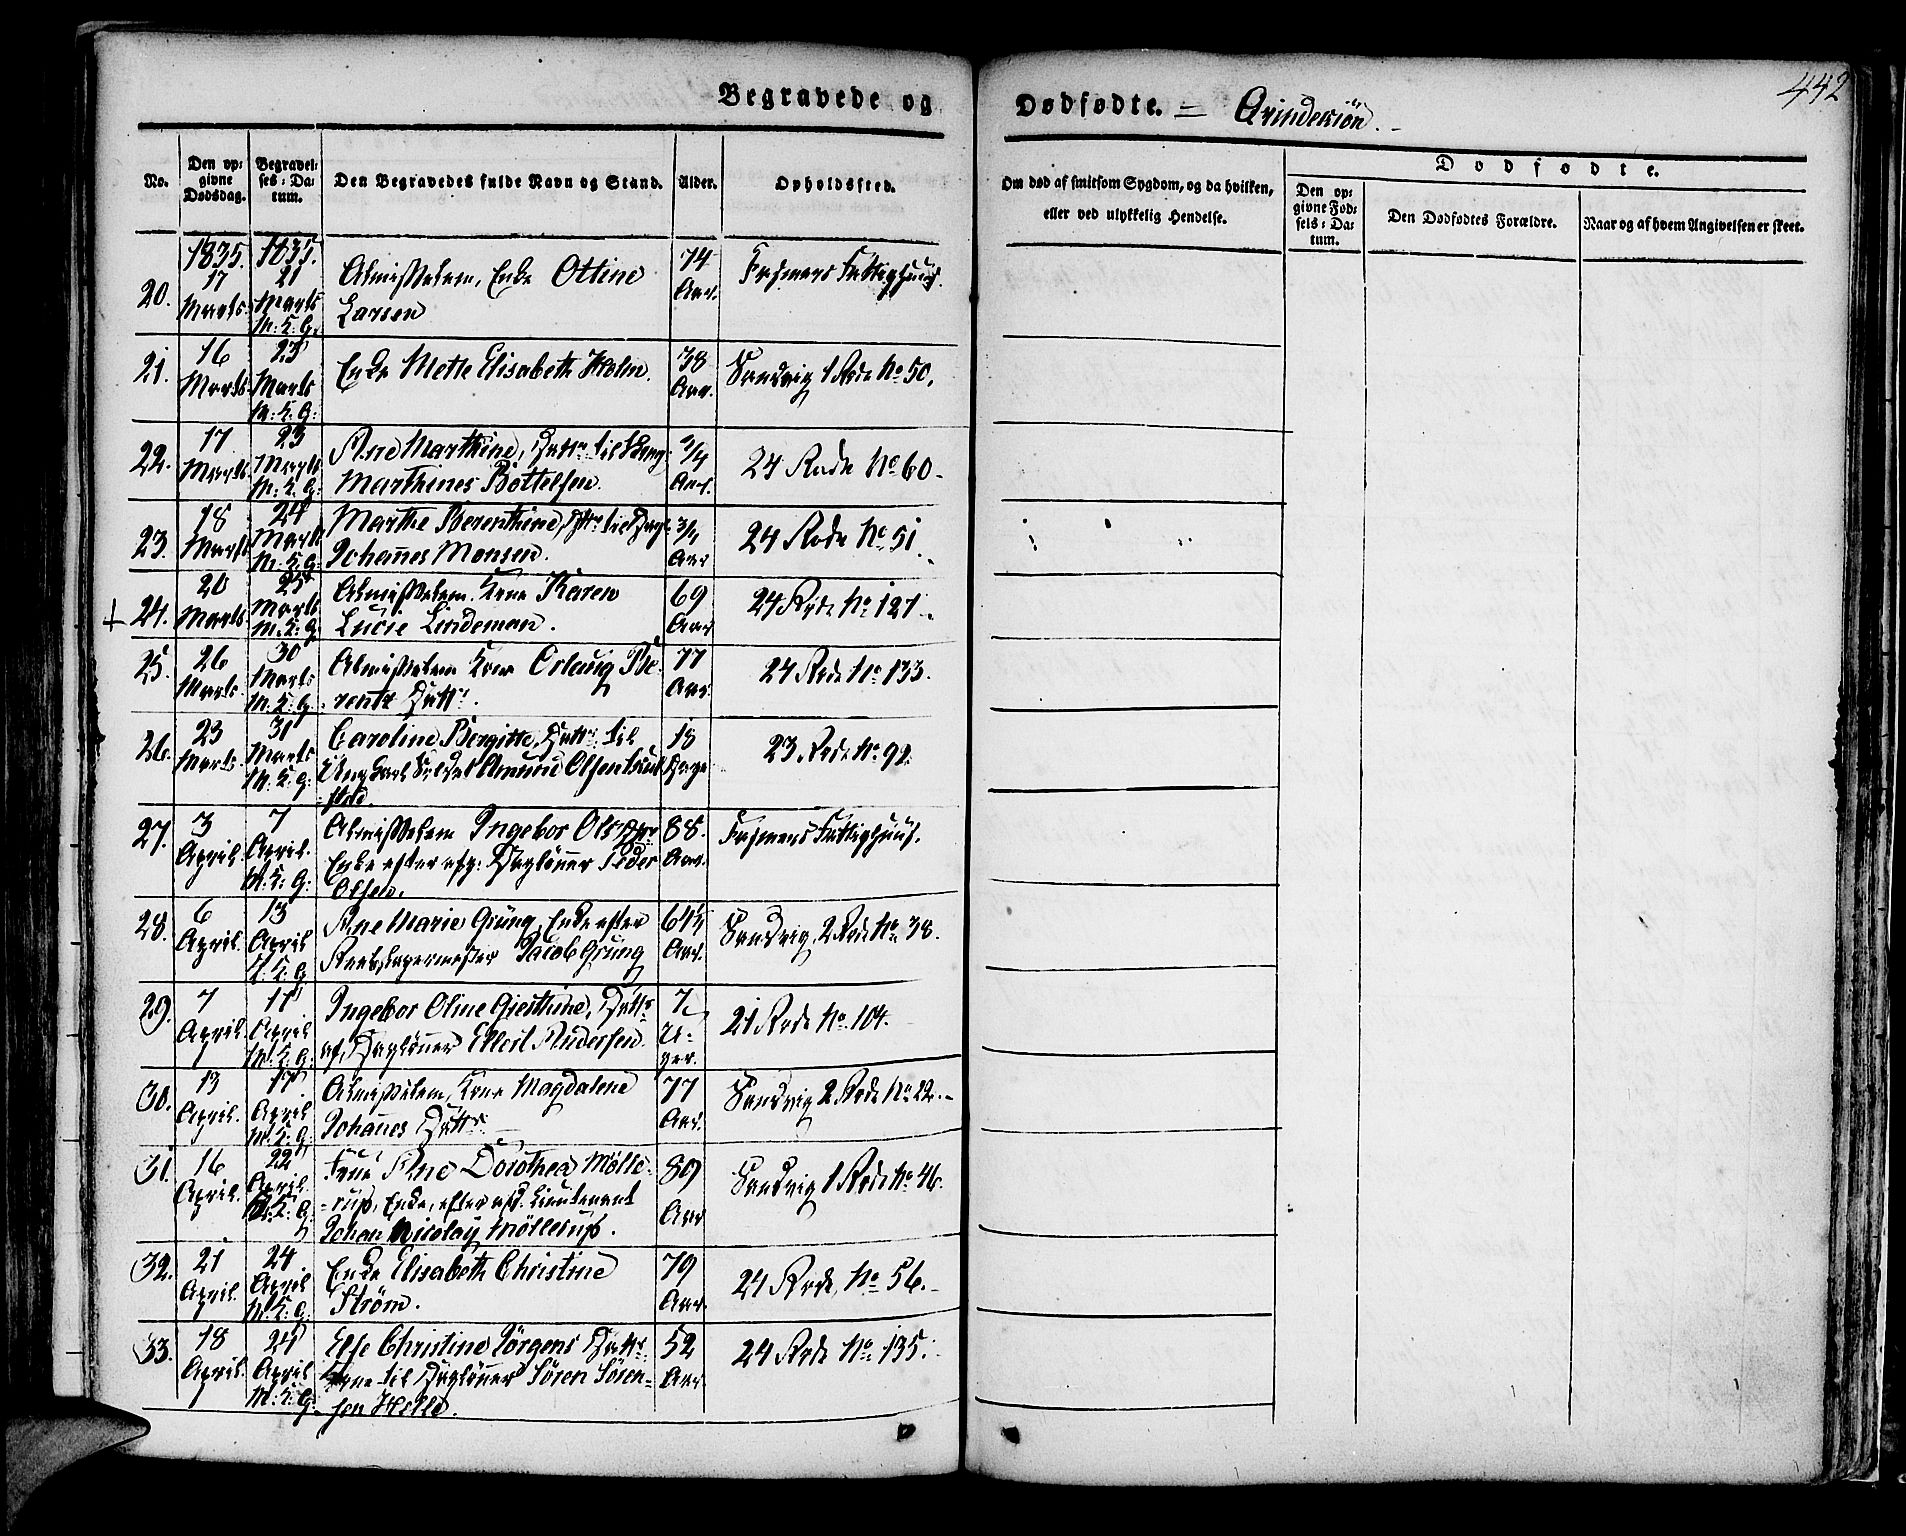 442
Begravede og
Dødfødte. = Qvindekiön. -
No.
Den op-
givne
Dødsdag.
Begravel-
ses-Da-
tum.
Den Begravedes fulde Navn og Stand.
Alder.
Opholdssted.
Om død af smitsom Sygdom, og da hvilken,
eller ved ulykkelig Hendelse.
Dødfødte.
Den op-
givne Fød-
sels-Da-
tum.
Den Dødfødtes Forældre.
Naar og af hvem Angivelsen er skeet.
20.
1835.
17
Marts.
1835.
21
Marts
M: K: G:
Almisselem, Enke Ottine
Larsen
74
Aar.
Fattighuus.
21.
16
Marts.
23
Marts
M: K: G:
Enke Mette Elisabeth Holm.
38
Aar.
Sandvig 1 Rode No 50.
22.
17
Marts.
23
Marts
M: K: G:
Ane Marthine, Datter til
Marthines Bottelsen.
3/4
Aar.
24 Rode No 60.
23.
18
Marts
24
Marts
M: K: G:
Marthe Berenthine, Dtr: til
Johañes Monsen.
3/4
Aar
24 Rode No 51.
24.
20
Marts.
25
Marts
M: K: G:
Almisselem Kone Karen
Lucie Lindeman.
69
Aar
24 Rode No 121.
25.
26
Marts.
30
Marts
M: K: G:
Almisselem Kone Orlaug Be-
rents Dattr.
77
Aar.
24 Rode No 133.
26.
23
Marts.
31
Marts
M: K: G:
Caroline Bergitte, Dattr: til
Amund Olsen
18
Dage
23 Rode No 92.
27.
3
April.
7
April.
M: K: G:
Almisselem Ingebor Ols Dtr
Enke efter afg: Dagløner Peder
Olsen.
88.
Aar.
Fattighuus.
28.
6
April.
13
April
K: G:
Ane Marie Grüng, Enke efter
Jacob Grüng
64½
Aar.
Sandvig, 2 Rode No 38.
29.
7
April.
17
April
M: K: G:
Ingebor Oline Giesthine, Dattr
af, Dagløner Ellert Andersen.
7
U-
ger.
21 Rode No. 104.
30.
13
April.
17
April
M: K: G:
Almisselem, Kone Magdalene
Johañes Dattr.
77
Aar.
Sandvig 2 Rode No 22.
31.
16
April.
22
April.
M: K: G:
Frue Ane Dorothea Mölle-
rup, Enke, efter afd. Lieutenant
Johan Nicolay Möllerups.
89
Aar
Sandvig 1 Rode No 46.
32.
21
April.
24
April
M: K: G:
Enke Elisabeth Christine
Strøm.
79
Aar.
24 Rode, No 56.
33.
18
April.
24
April
M: K: G:
Else Christine Jörgens Dattr
Kone til Dagløner Sören Sören-
sen Helle.
52
Aar.
24 Rode No 135.